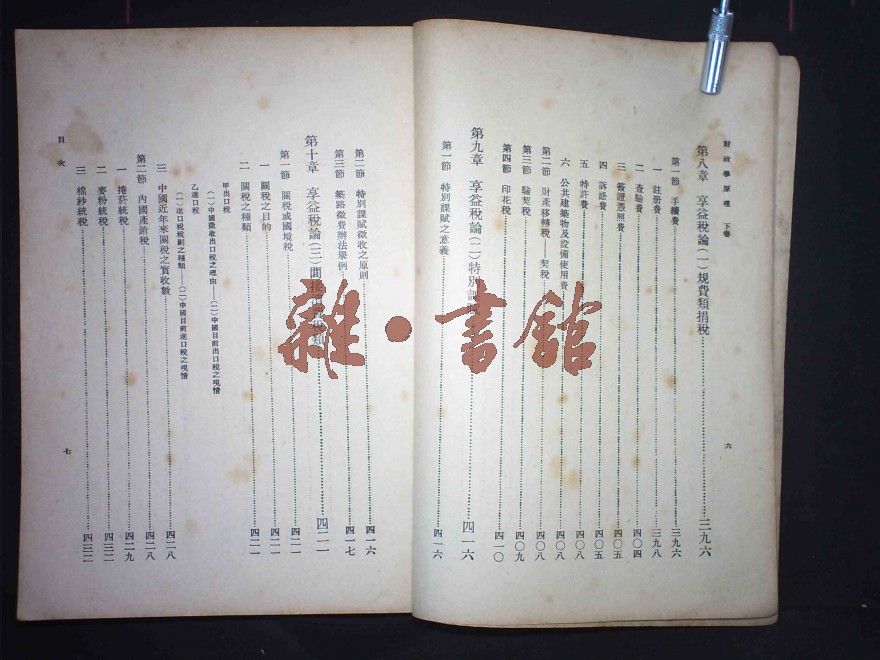 財政學原理 下卷
第八章 享益稅論(一)規費類捐稅……三九六
第一節 手續費……三九六
一 註冊費……三九八
二 查驗費……四〇四
三 簽證憑照費……四〇五
四 訴訟費……四〇五
五 特許費……四〇八
六 公共建築物及設備使用費……四〇八
第二節 財產移轉稅——契稅……四〇八
第三節 驗契稅……四〇九
第四節 印花稅……四一〇
第九章 享益稅論(二)特別課……四一六
第一節 特別課賦之意義……四一六
六
第二節 特別課賦徵收之原則……四一六
第三節 築路徵費辦法舉例……四一七
第十章 享益稅論(三)間接……四二一
第一節 關稅或國境稅……四二一
一 關稅之目的……四二一
二 關稅之種類……四二一
甲出口稅
(一)中國徵收出口稅之理由——(二)中國目前出口稅之現情
乙進口稅
(一)進口稅稅則之種類——(二)中國目前進口稅之現情
三 中國近年來關稅之實收數……四二八
第二節 內國產銷稅……四二八
一 捲菸統稅……四二九
二 麥粉統稅……四三二
三 棉紗統稅……四三二
目次
七
雜·書館